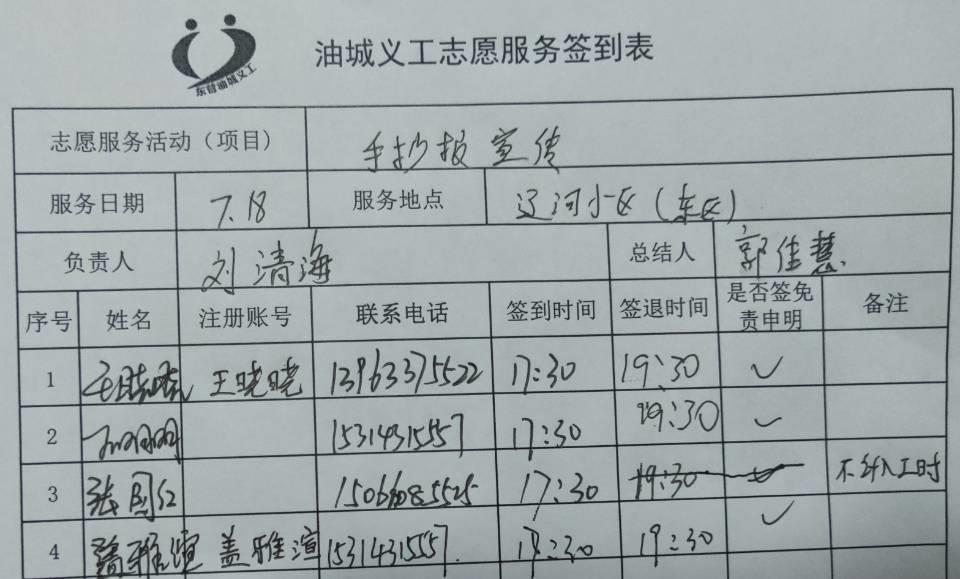 东营油城义工
油城义工志愿服务签到表
志愿服务活动（项目） 手抄报宣传
服务日期 7.18 服务地点 辽河小区（东区）
负责人 刘清海 总结人 郭佳慧
序号 姓名 注册账号 联系电话 签到时间 签退时间 是否签免责申明 备注
1 王晓晓 王晓晓 13963375522 17:30 19:30 ✓
2 15314315557 17:30 19:30 ✓
3 张国红 17:30 19:30 ✓ 不计入工时
4 盖雅渲 盖雅渲 15314315557 17:30 19:30 ✓